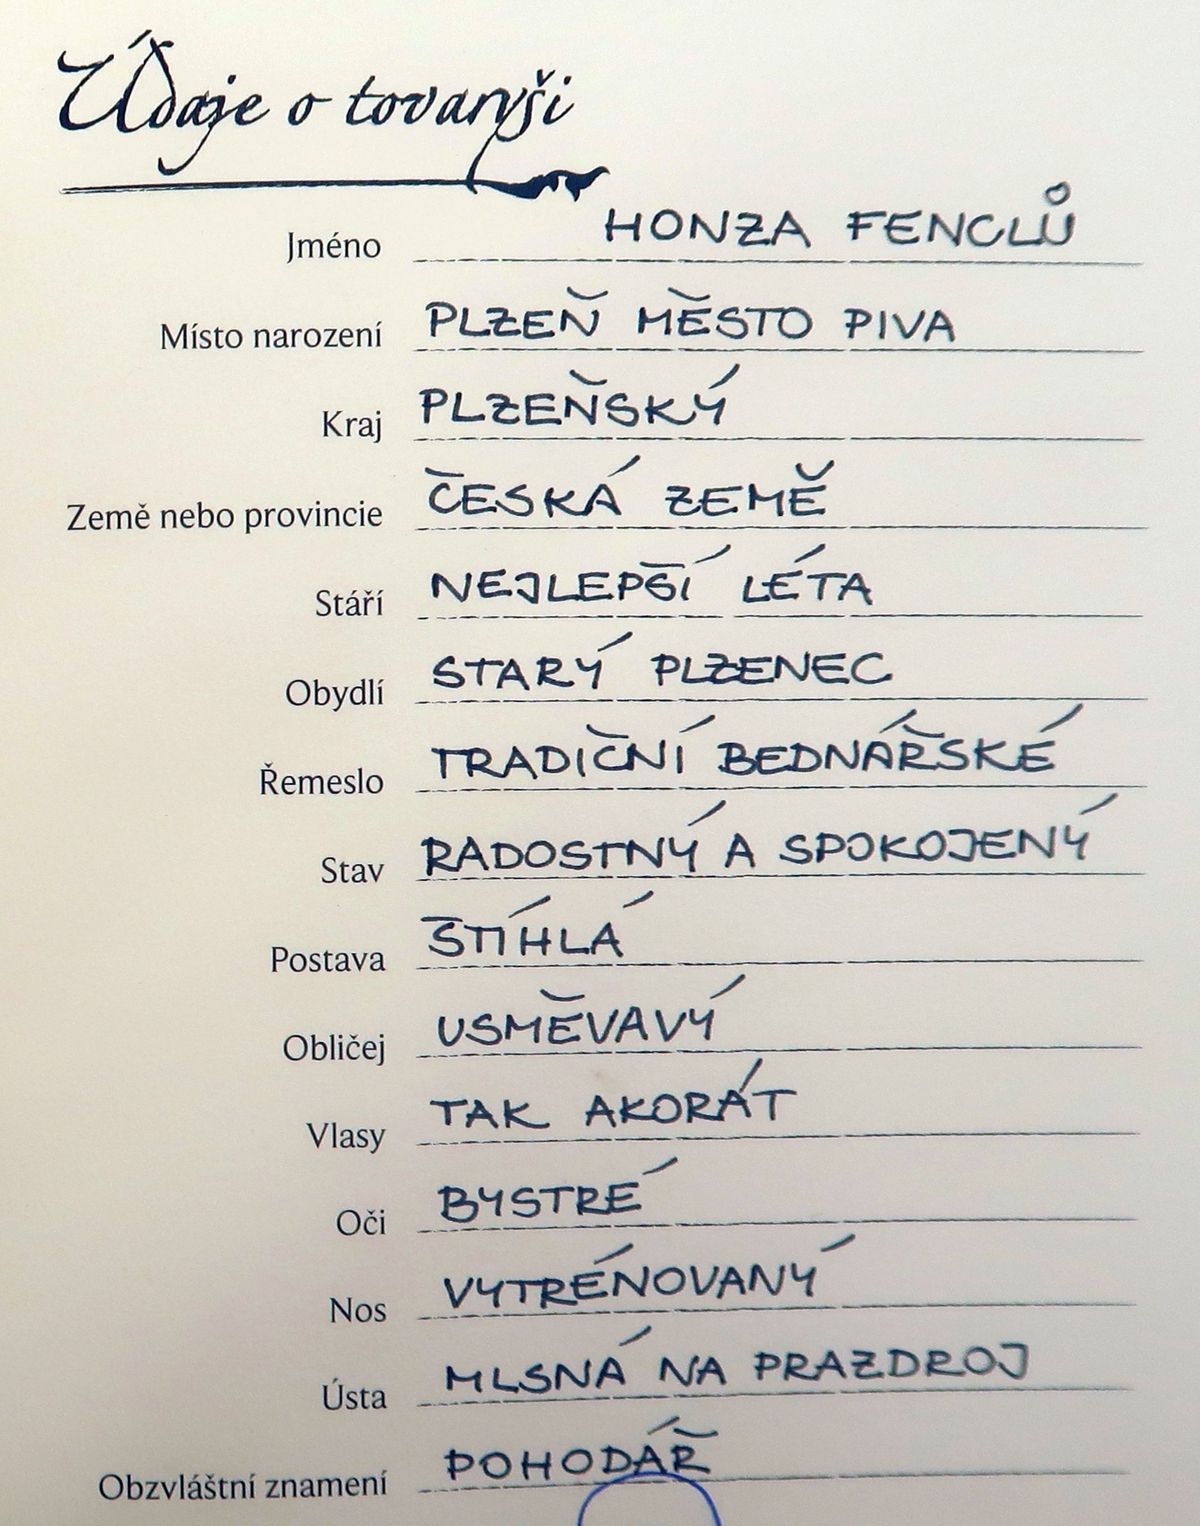 Údaje o tovaryši
Jméno HONZA FENCLŮ
Místo narození PLZEŇ MĚSTO PIVA
Kraj PLZEŇSKÝ
Země nebo provincie ČESKÁ ZEMĚ
Stáří NEJLEPŠÍ LÉTA
Obydlí STARÝ PLZENEC
Řemeslo TRADIČNÍ BEDNÁŘSKÉ
Stav RADOSTNÝ A SPOKOJENÝ
Postava ŠTÍHLÁ
Obličej USMĚVAVÝ
Vlasy TAK AKORÁT
Oči BYSTRÉ
Nos VYTRÉNOVANÝ
Ústa MLSNÁ NA PRAZDROJ
Obzvláštní znamení POHODÁŘ